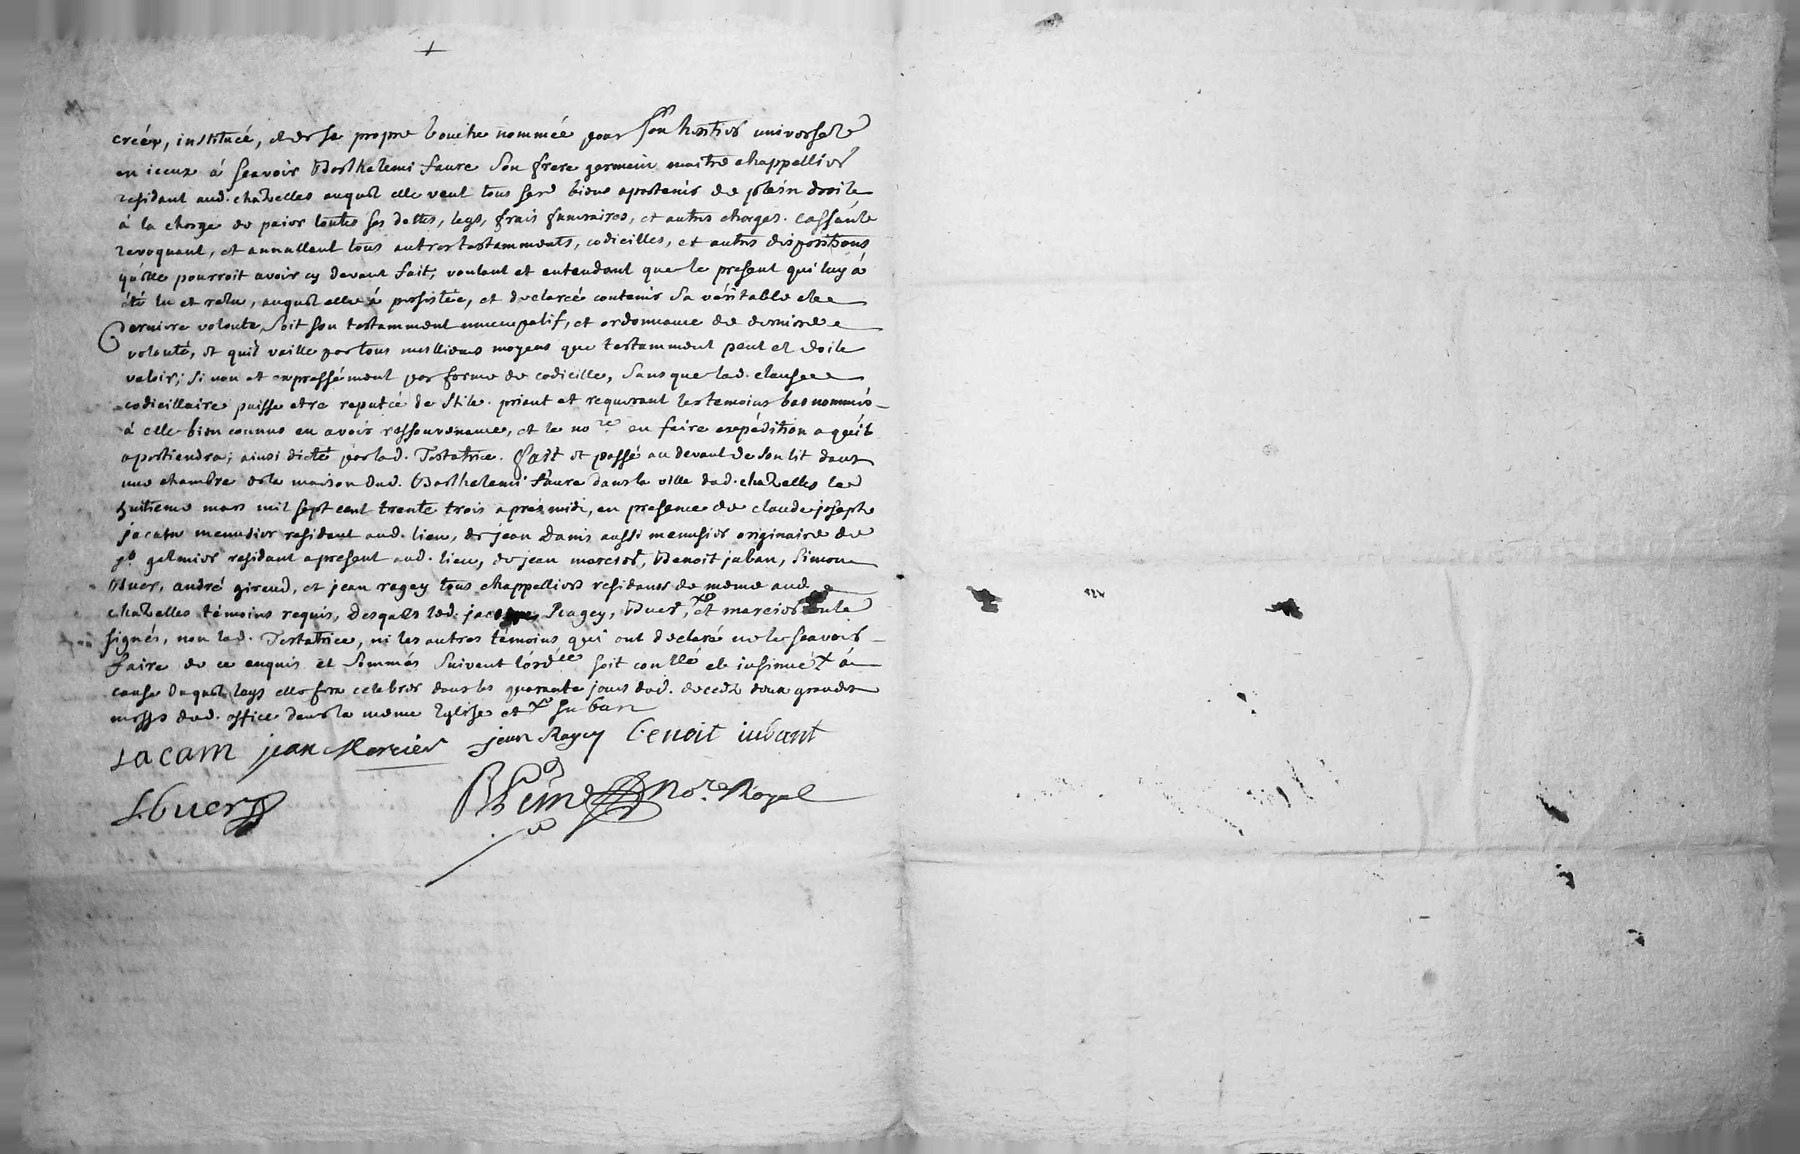 créée, instituée, et de sa propre bouche nommée pour son heritier universel
en iceux à scavoir Barthelemi faure son frere germain maitre chappellier
residant aud. chazelles auquel elle veut tous ses biens apartenir de plein droite
à la charge de paier toutes ses dettes, legs, frais funeraires, et autres charges. Cassante
revoquant, et annullant tous autres testamments, codicilles, et autres dispositions
qu'elle pourroit avoir cy devant fait, voulant et entendant que le present qui luy á
été lu et relu, auquel elle à persistée, et declarée contenir sa véritable et
derniere volonté, soit son testamment nuncupatif, et ordonnance de derniere
volonté, et quil vaille par tous meillieurs moyens que testamment peut et doite
valoir; si non et expressément par forme de codicille, sans que lad. clause
codicillaire puisse etre reputée de stile. priant et requerant les temoins bas nommés
á elle bien connus en avoir ressouvenance, et le no.re en faire expédition a qu'il
apartiendra; ainsi dicté par lad. Testatrice. fait et passé au devant de son lit dans
une chambre de la maison dud. Barthelemi faure dans la ville dud. chazelles le
huitieme mars mil sept cent trente trois aprés midi, en presence de claude joseph
jacam menusier residant aud. lieu, de jean Danis aussi menusier originaire de
st. galmier residant apresent aud. lieu, de jean mercier, Benoit juban, Simon
Buer, andré giraud, et jean ragey tous chappelliers residants de meme aud.
chazelles témoins requis, desquels led. jacam, Ragey, Buer, et mercier ont
signés, non lad. Testatrice, ni les autres témoins qui ont declaré ne le scavoir
faire de ce enquis et sommés suivant l'ord.ce soit con.llé et insinué x á
cause duquel legs elle fera celebrer dans les quarante jours dud. decedz deux grandes
messes dud. office dans la meme Eglise et x juban
Lacam jean Mercier jean Ragey benoit iubant
S buer No.re Royal